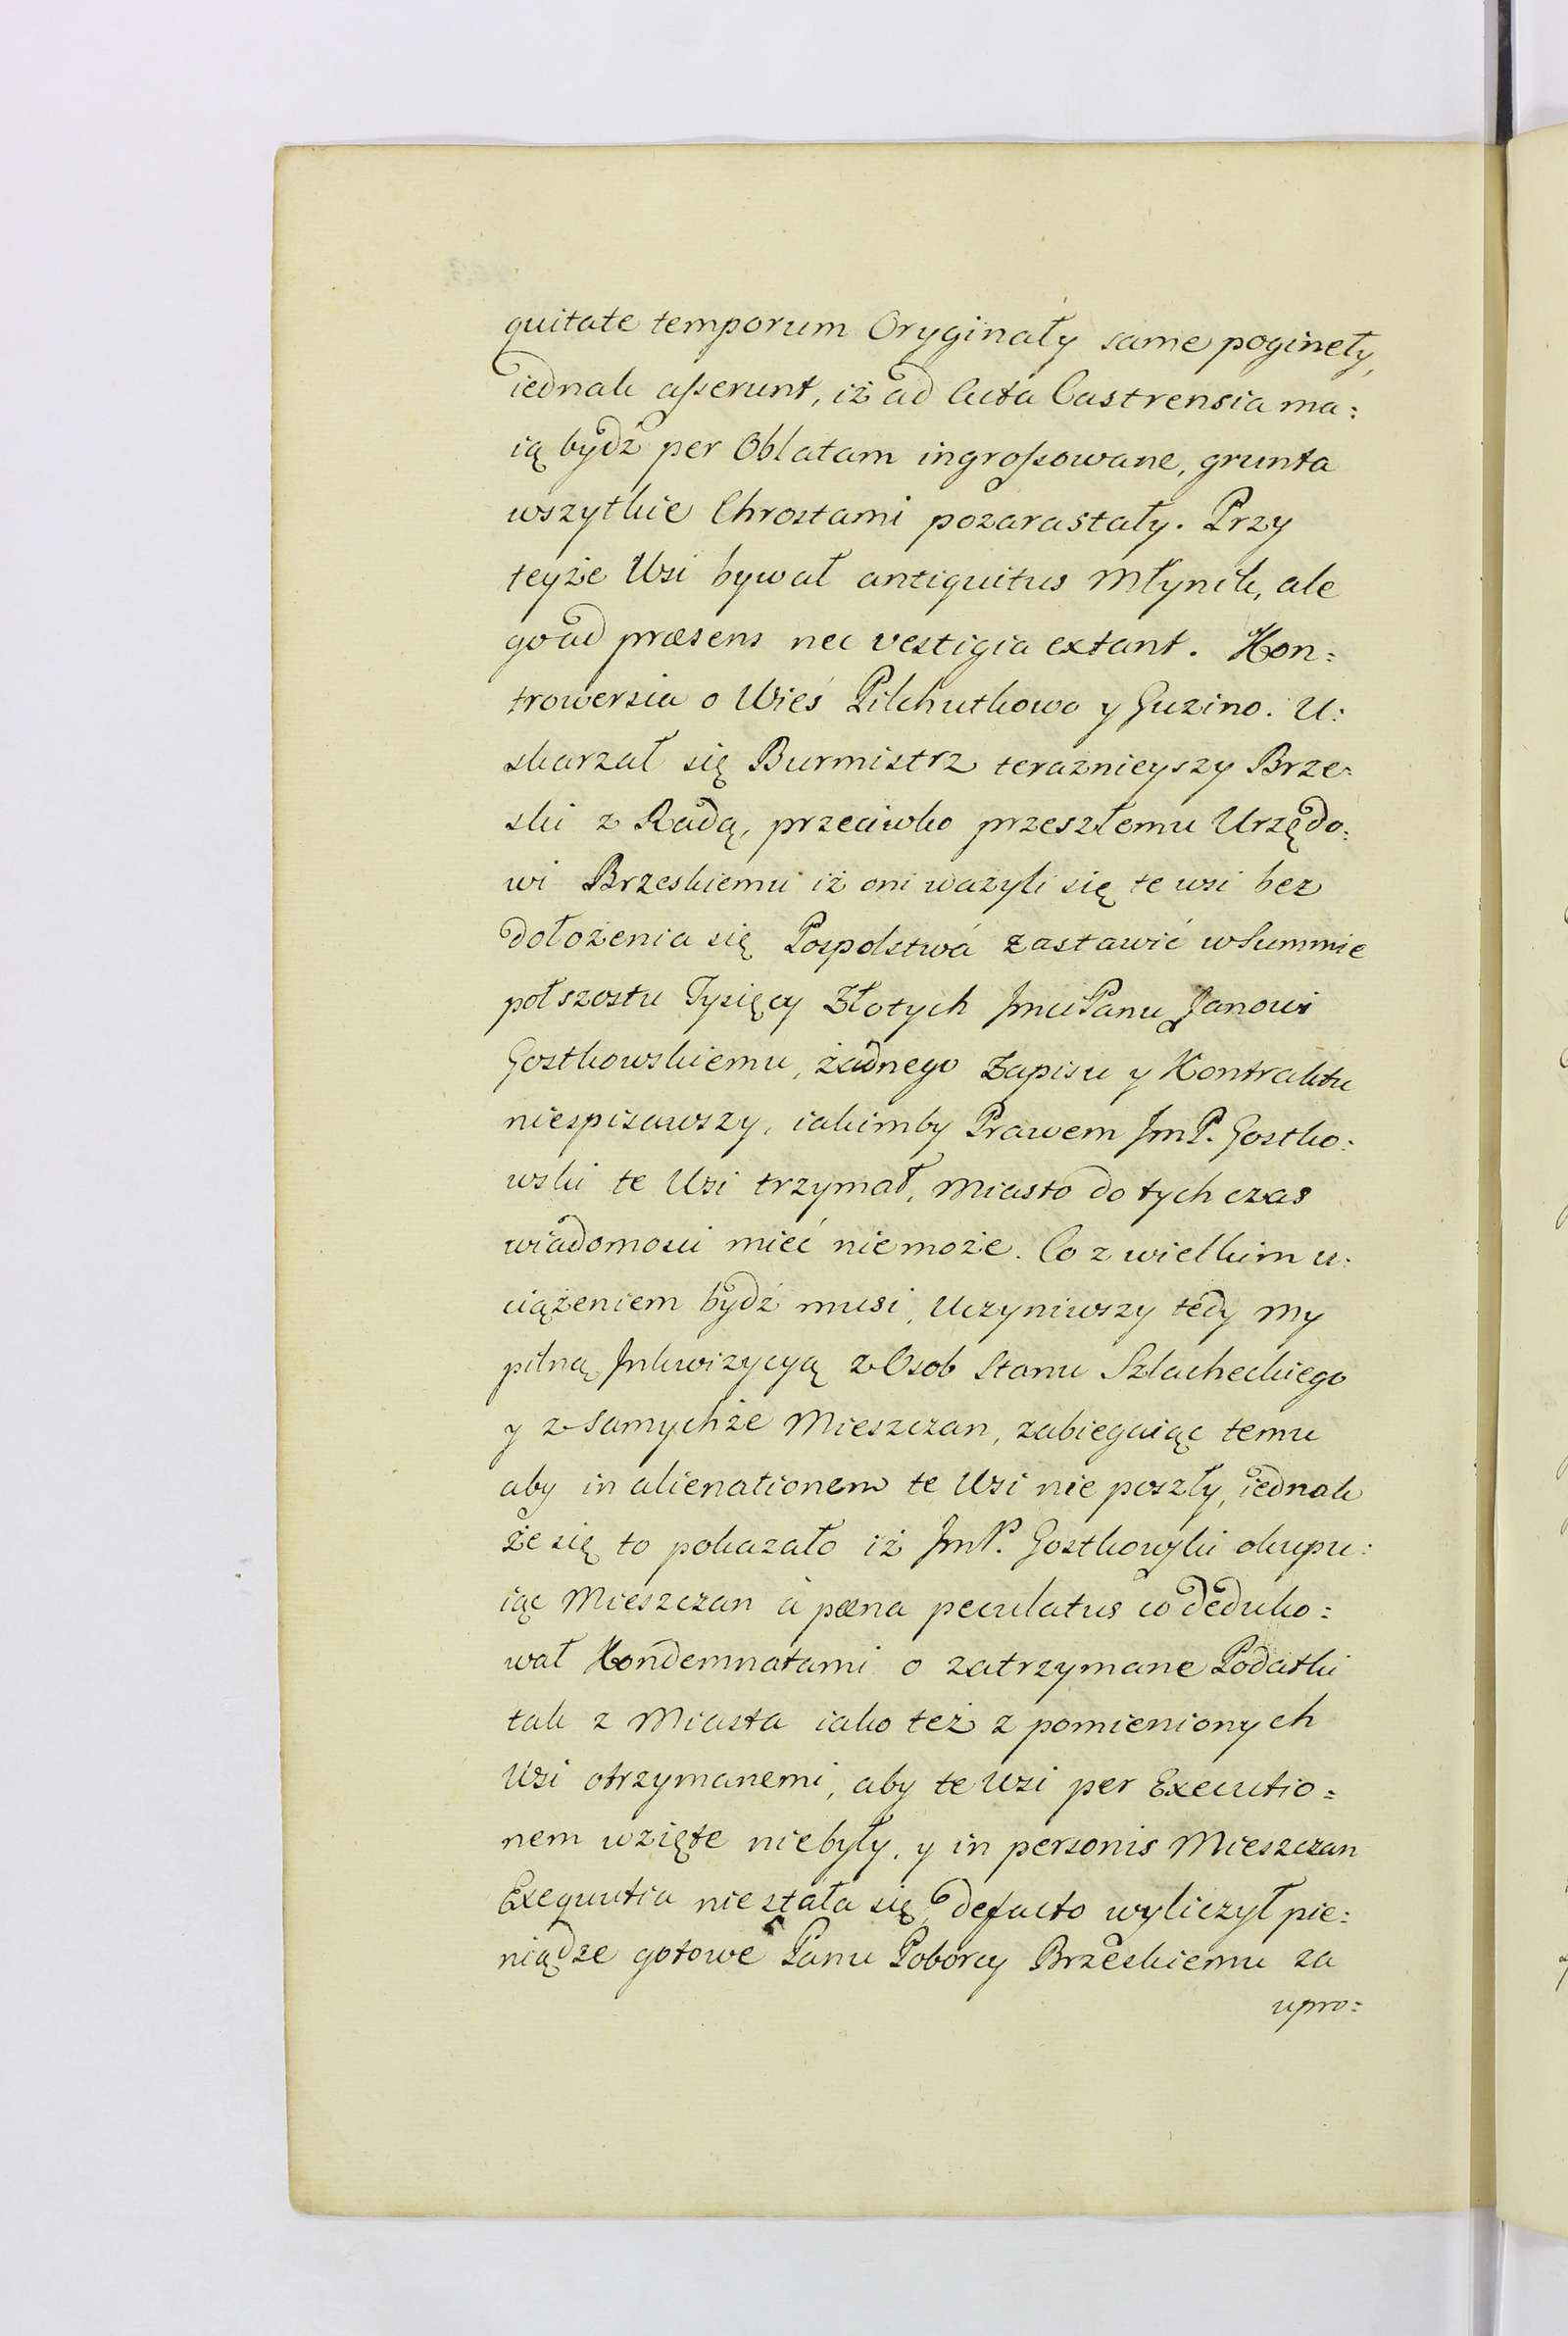 quitate temporum Oryginały same poginęły,
iednak asserunt, iż ad Acta Castrensia ma:
ią bydź per Oblatam ingrossowane, grunta
wszytkie Chrostami pozarastały. Przy
teyże Wsi bywał antiquitus Młynik, ale
go ad præsens nec vestigia extant. Kon:
trowersia o Wieś Pilchutkowo y Guzino. U:
skarzał się Burmistrz teraznieyszy Brze:
ski z Radą, przeciwko przeszłemu Urzędo:
wi Brzeskiemu iż oni ważyli się te wsi bez
dołożenia się Pospolstwá zastawić w Summie
poł szostu Tysięcy Złotych Jmci Panu Janowi
Gostkowskiemu, żadnego Zapisu y Kontraktu
niespisawszy, iakimby Prawem JmP. Gostko:
wski te Wsi trzymał, Miasto do tych czas
wiadomosci mieć niemoże. Co z wielkim u:
ciążeniem bydź musi, Uczyniwszy tedy my
pilną Inkwizycyą z Osob Stanu Szlacheckiego
y z samychże Mieszczan, zabiegaiąc temu
aby in alienationem te Wsi nie poszły, iednak
że się to pokazało iż JmP. Gostkowski okupu:
iąc Mieszczan á pæna peculatus co deduko:
wał Kondemnatami o zatrzymane Podatki
tak z Miasta iako też z pomienionych
Wsi otrzymanemi, aby te wsi per Executio:
nem wzięte niebyły, y in personis Mieszczan
Exequutia nie stała się, de facto wyliczył pie:
niądze gotowe Panu Poborcy Brzeskiemu za
upro: